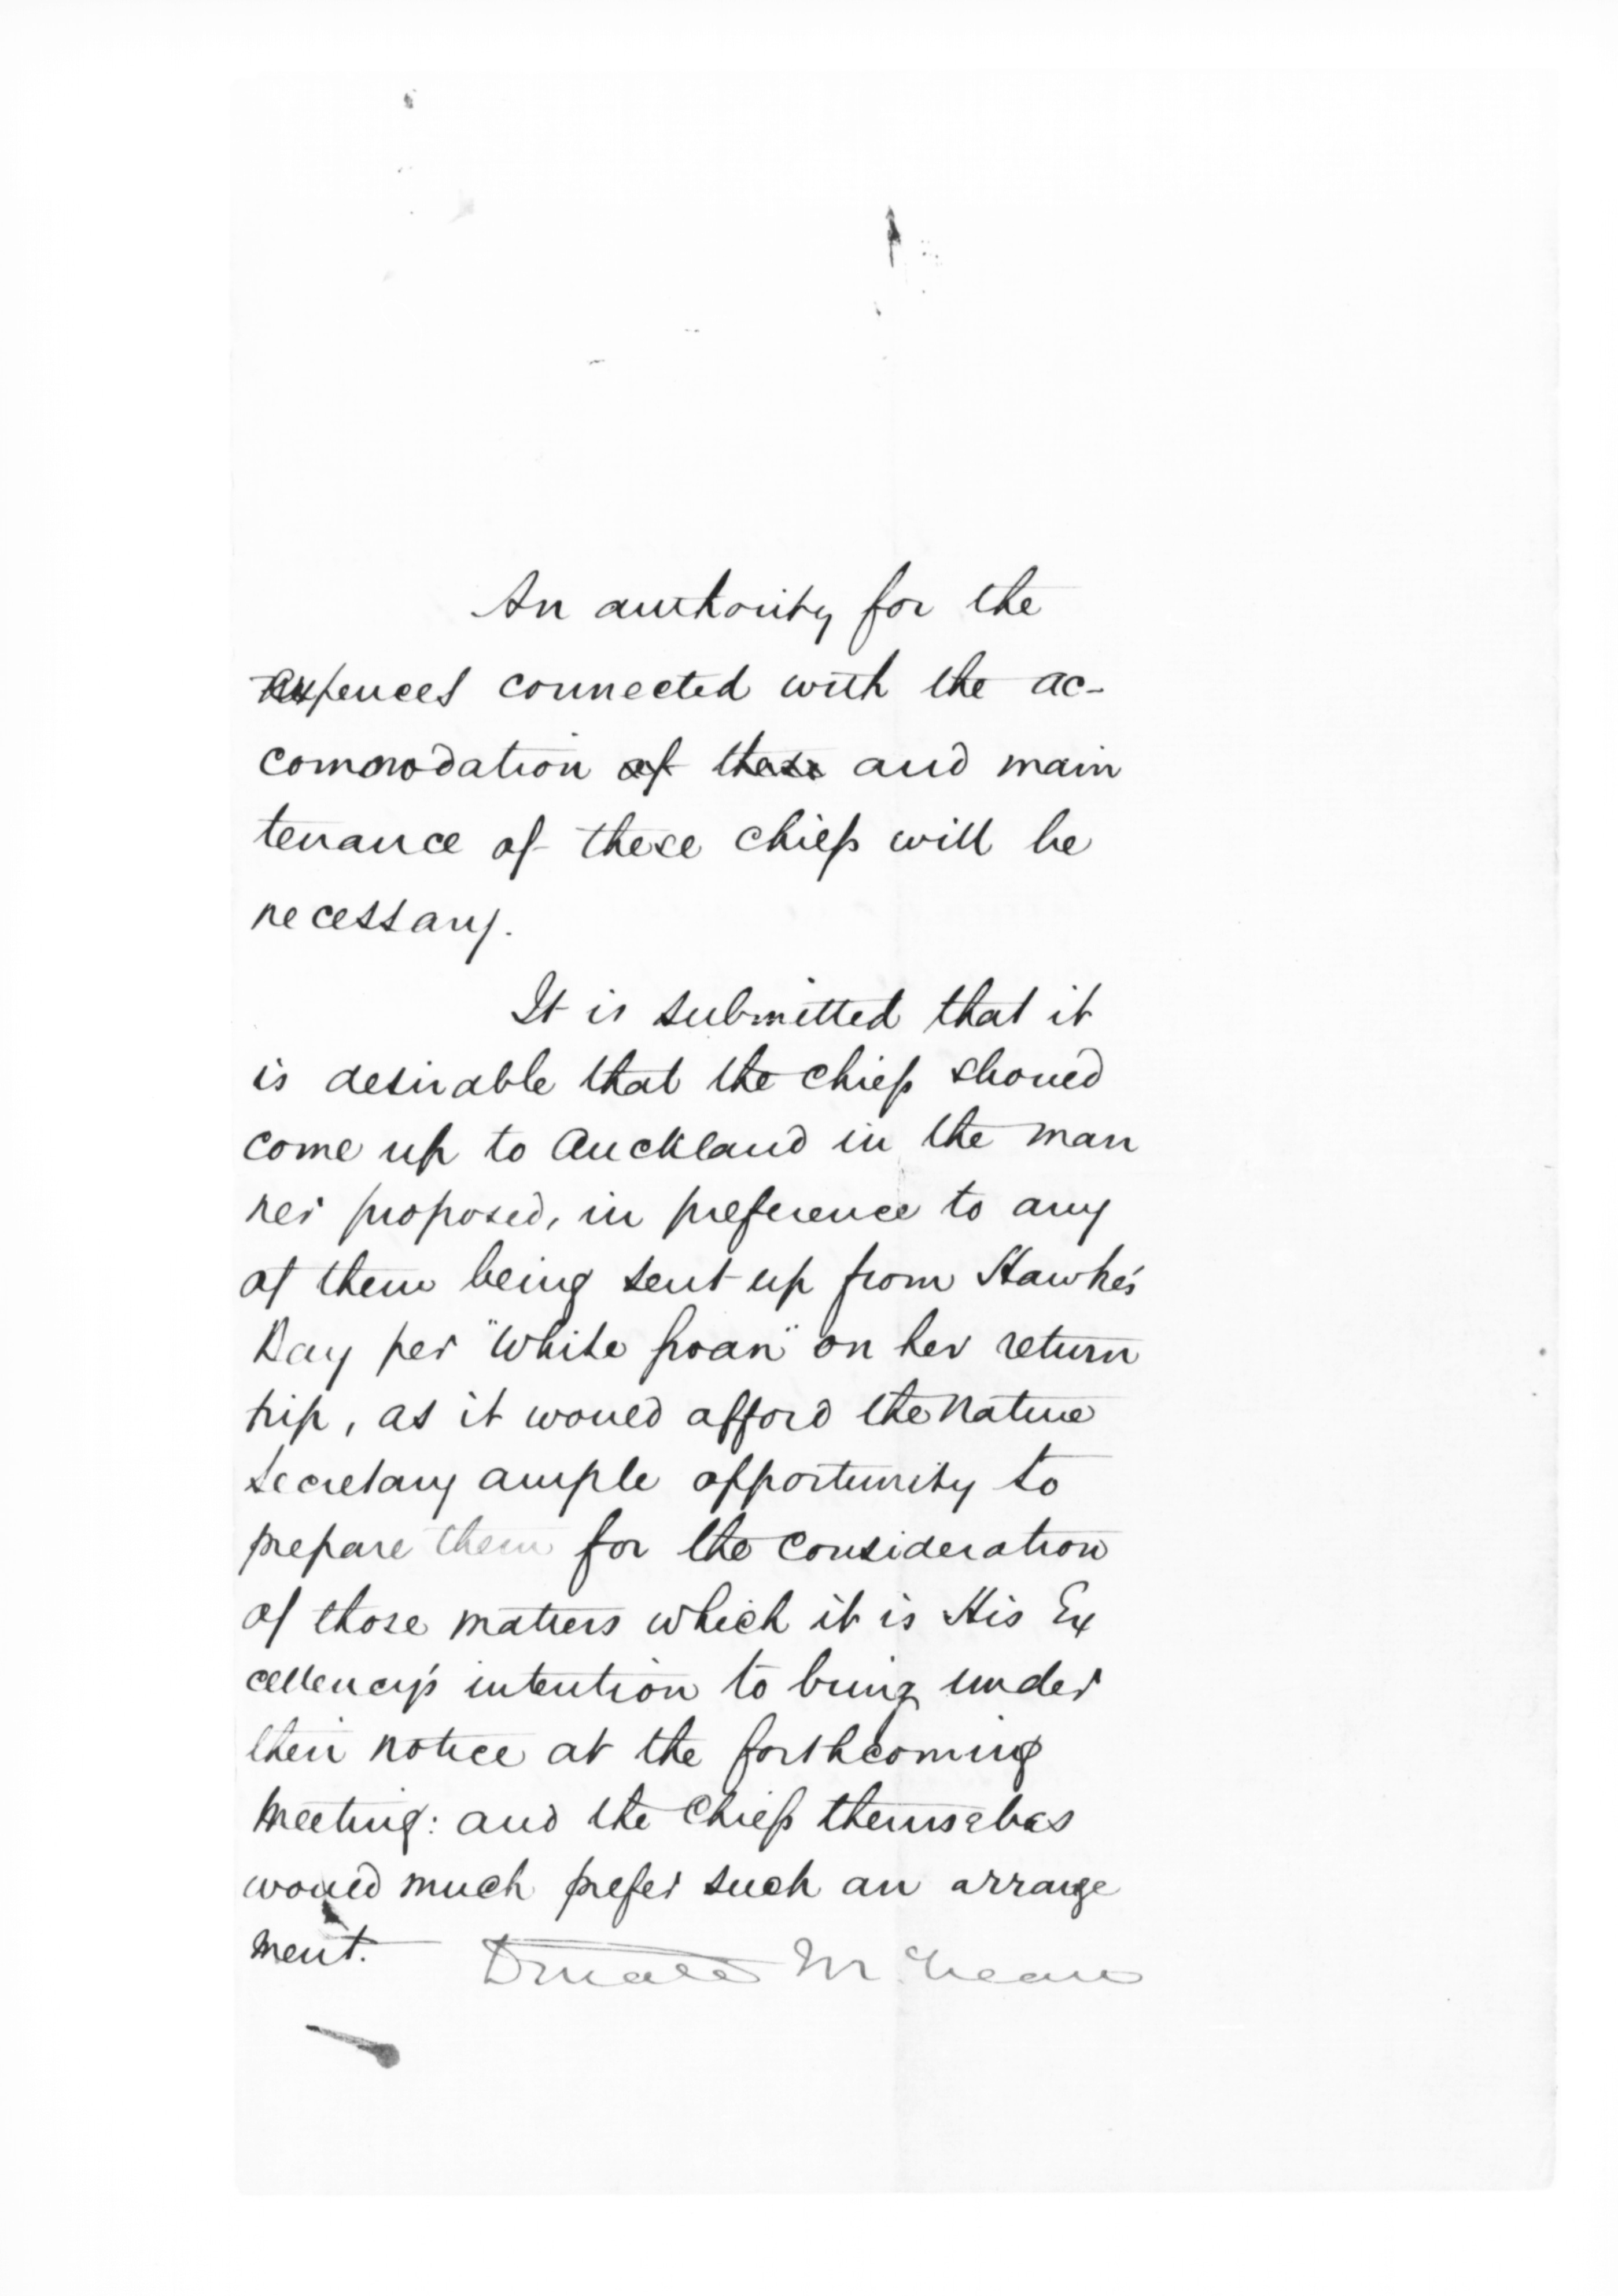 An authority for the
expences connected with the ac-
commodation of these and main
tenance of these chiefs will be
necessary.
It is submitted that it
is desirable that the chiefs should
come up to Auckland in the man
ner proposed, in preference to any
of them being sent up from Hawke's
Bay per "White Swan" on her return
trip, as it would afford the Native
Secretary ample opportunity to
prepare them for the consideration
of those matters which it is His Ex
cellency's intention to bring under
their notice at the forthcoming
meeting: and the Chiefs themselves
would much prefer such an arrange
ment. Donald McLean